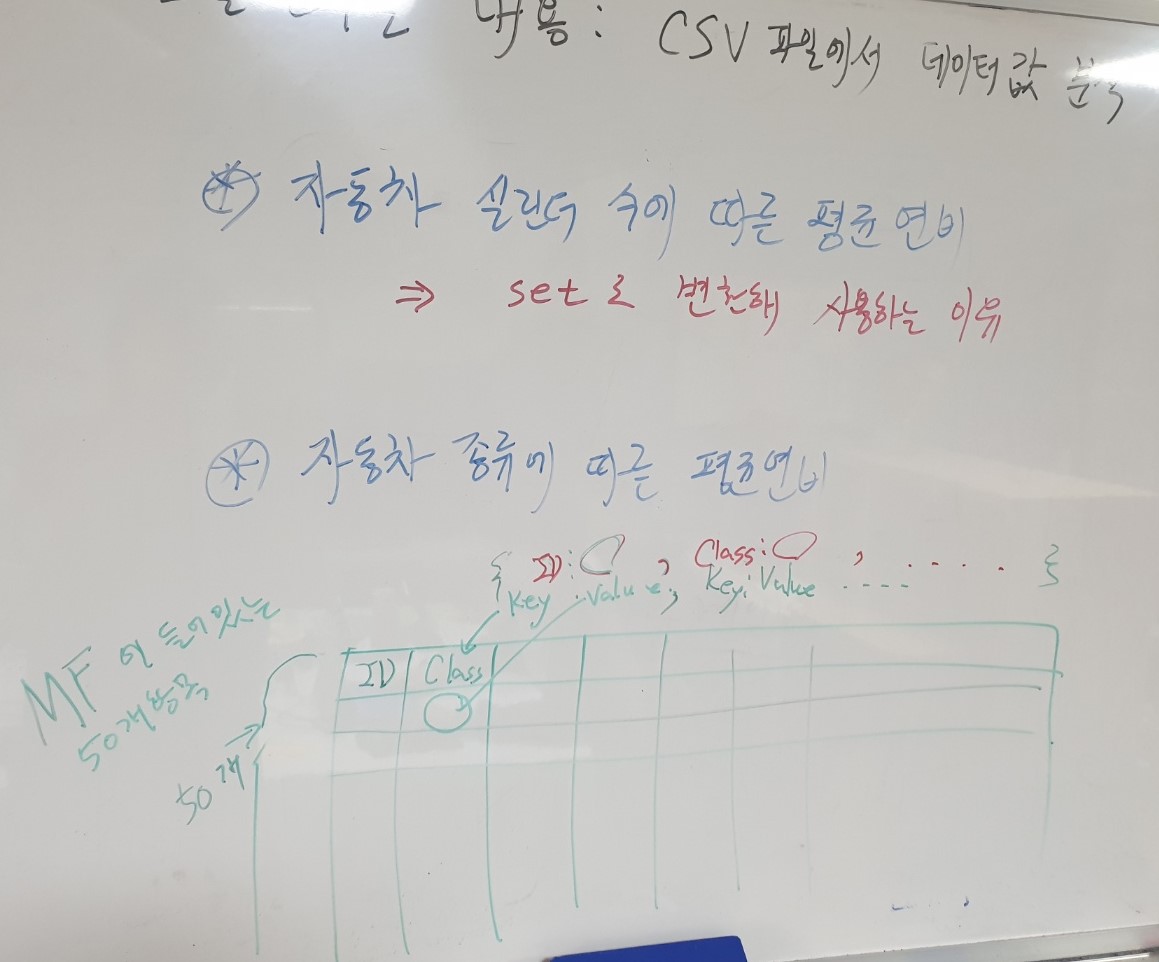 내용: CSV 파일에서 데이터값 분석
자동차 실린더 수에 따른 평균연비
⇒ set로 변환해 사용하는 이유
자동차 종류에 따른 평균연비
{ ID: , Class: , ..... }
Key : Value, Key: Value ----
MF에 들어있는
50개항목
50개
ID Class